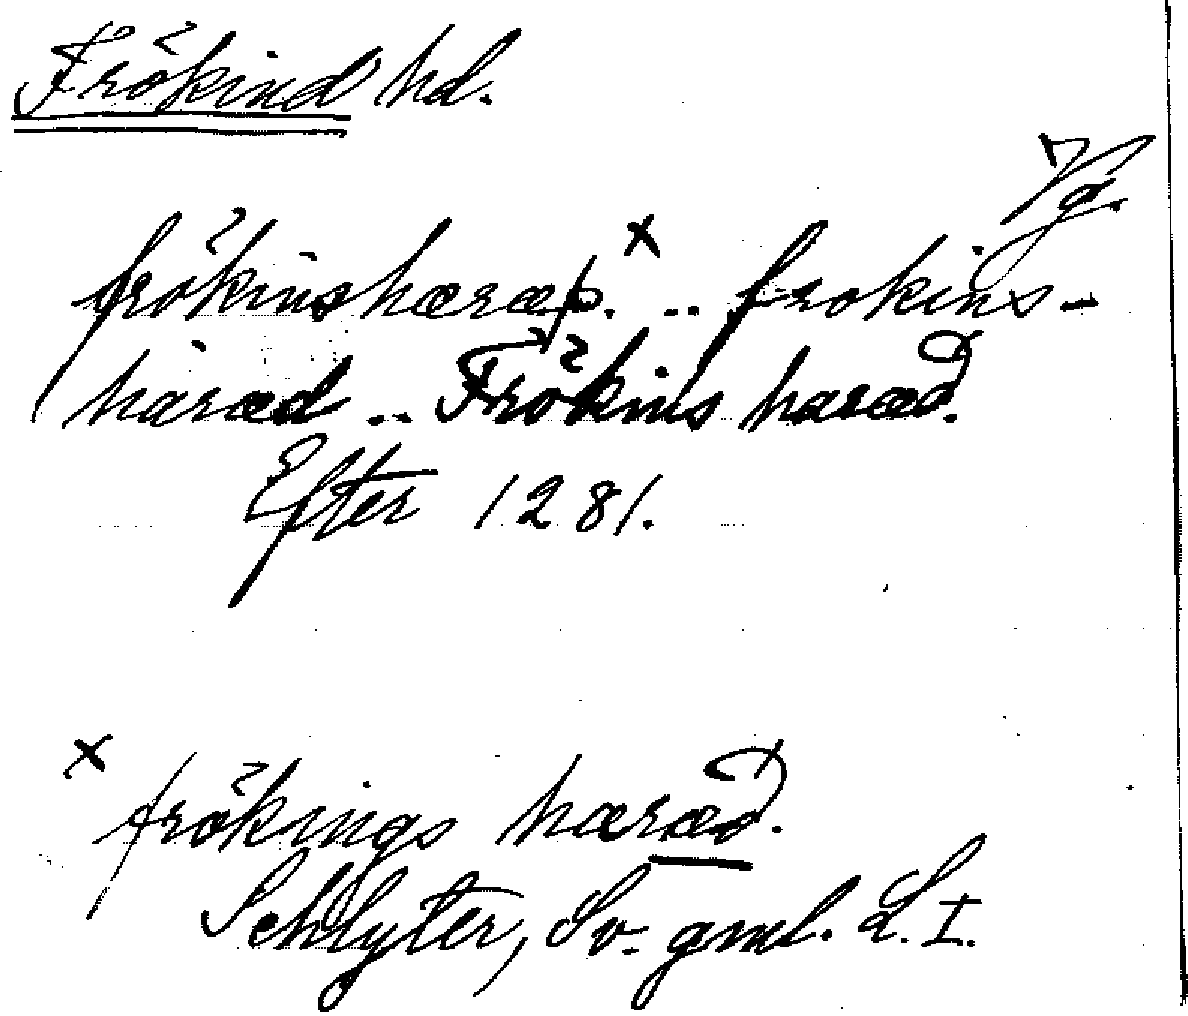 Frökind hd.
Vg.
frökinshæræþ.x .. frokins-
hàræd .. Frökins haræð.
Efter 1281.
x frökings hæræð.
Schlyter, Sv. gml. L. I.